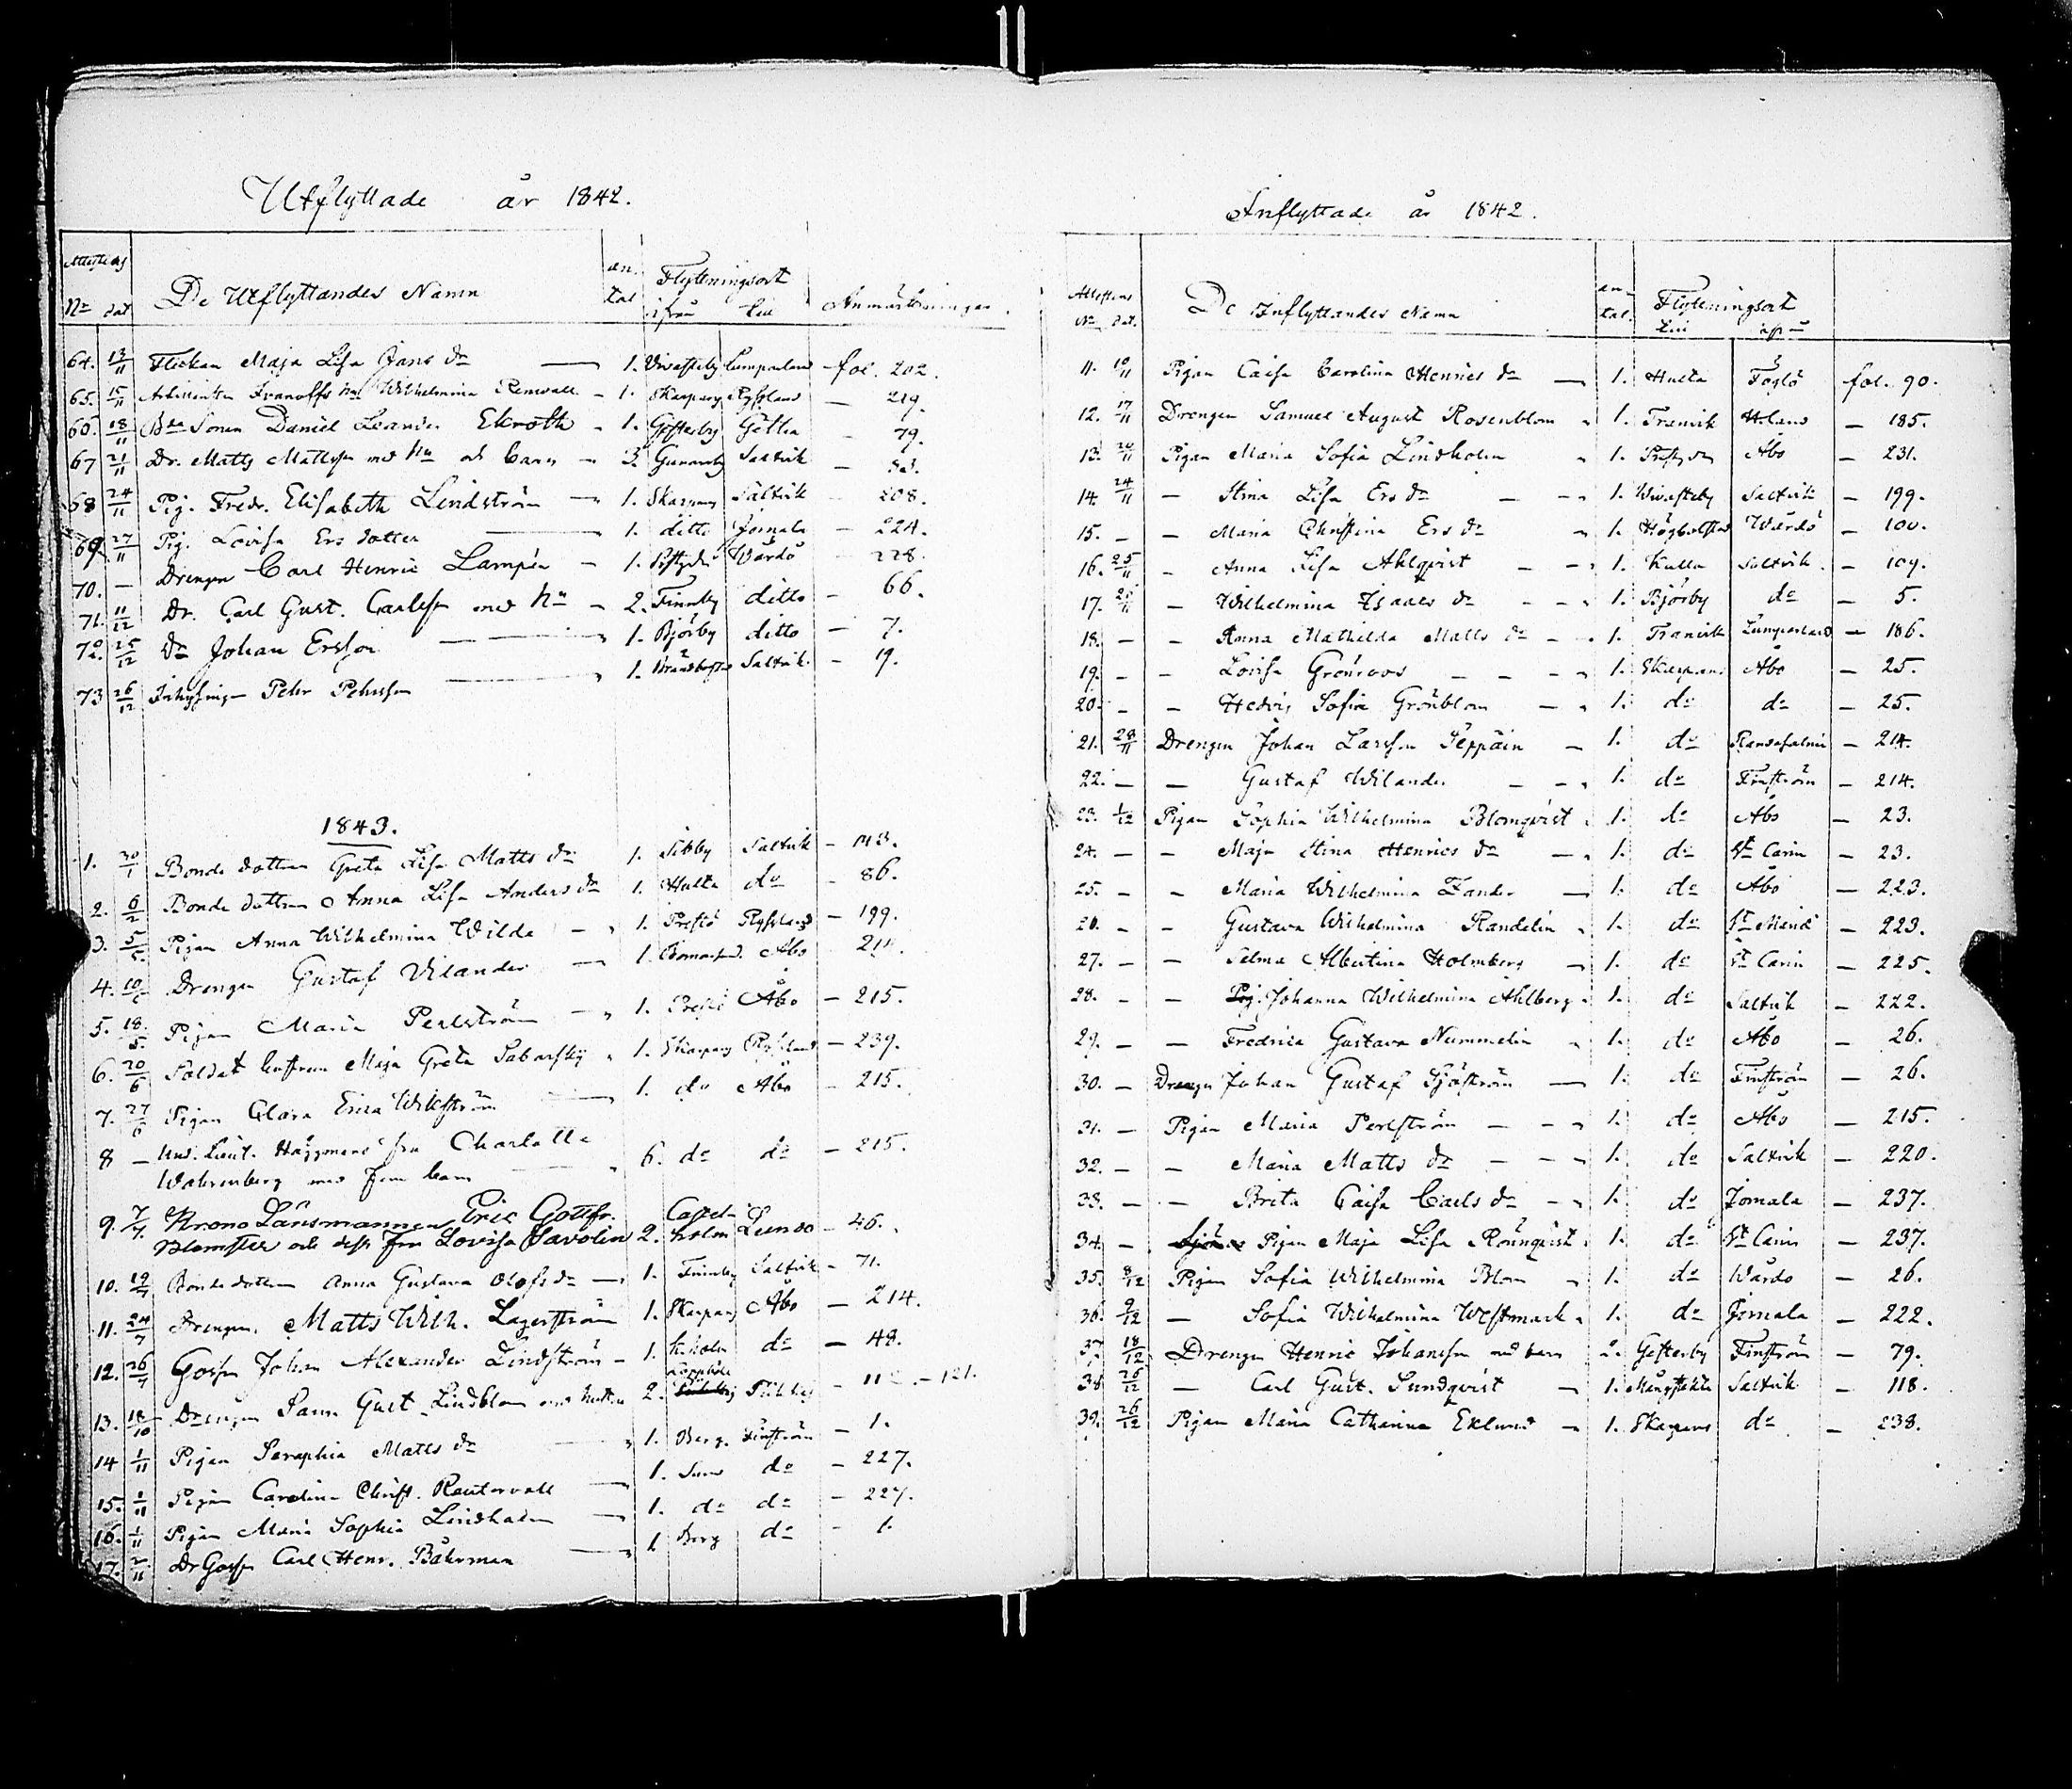 Utflyttade år 1842.
De Utflyttandes Namn an- tal Flyttningsort ifrån till Anmärkningar.
64. 13/11 Flickan Maja Lisa Jans dr 1. Wivasteby Lumparland fol. 202.
65. 15/11 Ivanoffs Wilhelmina Renvall 1. Skarpans Ryssland 219.
66. 18/11 Bde Sonen Daniel Leander Ekroth 1. Gesterby Getha 79.
67 21/11 Dr. Matts Mattsson med hu och barn 3. Saltvik
68 24/11 Pig. Fredr. Elisabeth Lindström 1. Skarpans Saltvik 208.
69 27/11 Pig. Lovisa Ers dotter 1. ditto Jomala 224.
70. — Drengen Carl Henric Lampén 1. Wårdö 228.
71. 11/12 Dr. Carl Gust. Carlsson med hu 2. Finnby ditto 66.
72. 25/12 Do Johan Ersson 1. Björby ditto 7.
73 26/12 Inhysingen Pehr Pehrsson 1. Saltvik 19.
1843.
1. 30/1 Bonde dottren Greta Lisa Matts dr 1. Sibby Saltvik
2. 6/2 Bonde dottren Anna Lisa Anders dr 1. Hulta do 86.
3. 5/5 Pigan Anna Wilhelmina Wilde 1. Prestö Ryssland 199.
4. Drengen Gustaf Vilander 1. Bomarsund Åbo 214.
5. 18/5 Pigan Maria Perlström 1. Prestö Åbo 215.
6. 20/6 Soldat hustrun Maja Greta Sabarsky 1. Skarpans Ryssland 239.
7. 27/6 Pigan Clara Erica Wikström 1. do Åbo 215.
8 — Und. Lieut. Häggmans fru Charlotte
Wahrenberg med fem barn 6. do do 215.
9. 7/7 Krono Länsmannen Eric Gottfr. Castel-
Blomster och dess fru Lovisa Savolin 2. holm Lundo 46.
10. 19/7 Bonde dottren Anna Gustava Olofs dr 1. Finnby Saltvik 71.
11. 24/7 Drengen Matts Wilh. Lagerström 1. Skarpans Åbo 214.
12. 26/7 Gossen Johan Alexander Lindström 1. do 48.
13. 18/10 Drengen Gust. Lindblom med hustru 2. 121.
14 1/11 Pigan Seraphia Matts dr 1. Berg. Finström 1.
15. 1/11 Pigan Carolina Christ. Rautervall 1. Sund do 227.
16. 1/11 Pigan Maria Sophia Lindholm 1. do do 227.
17. 2/11 Dr Gossen Carl Henr. Båhrman 1 Berg do 1.
Inflyttade år 1842.
Attestens No dat. De Inflyttandes Namn an- tal. Flyttningsort till
11. 10/11 Pigan Caisa Carolina Henrics dr 1. Hulta Föglö fol. 90.
12. 17/11 Drengen Samuel August Rosenblom 1. Tranvik Hland 185.
13. 20/11 Pigan Maria Sofia Lindholm 1. Åbo 231.
14. 24/11 Stina Lisa Ers dr 1. Wivasteby Saltvik 199.
15. — Maria Christina Ers dr 1. Högbolsta Wårdö 100.
16. 25/11 Anna Lisa Ahlqvist 1. Kulla Saltvik. 109.
17. Wilhelmina Isaacs dr 1. Björby do 5.
18. — Anna Mathilda Matts dr 1. Tranvik Lumparland 186.
19. — Lovisa Grönroos 1. Skarpans Åbo 25.
20. — Hedvig Sofia Grönblom 1. do do 25.
21. 28/11 Drengen Johan Larsson Seppäin 1. do Randasalmi 214.
22. — Gustaf Wilander 1. do Finström 214.
23. 1/12 Pigan Sophia Wilhelmina Blomqvist 1. do Åbo 23.
24. — Maja Stina Henrics dr 1. do St Carin 23.
25. — Maria Wilhelmina Fander 1. do Åbo 223.
26. — Gustava Wilhelmina Randelin 1. do St Marie 223.
27. — Selma Albertina Holmberg 1. do St Carin 225.
28. — Pig. Johanna Wilhelmina Ahlberg 1. do Saltvik 222.
29. — Fredrica Gustava Nummelin 1. do Åbo 26.
30. — Drengen Johan Gustaf Sjöström 1. do Finström 26.
31. — Pigan Maria Perlström 1. do Åbo 215.
32. — Maria Matts dr 1. do Saltvik 220.
33. — Brita Caisa Carls dr 1. do Jomala 237.
34. — Pigan Maja Lisa Rönnqvist 1. do St Carin 237.
35. 8/12 Pigan Sofia Wilhelmina Blom 1. do Wårdö 26.
36. 9/12 Sofia Wilhelmina Westmark 1. do Jomala 222.
37. 18/12 Drengen Henric Johansson med barn 2. Gesterby Finström 79.
38. 25/12 Carl Gust. Sundqvist 1. Mångstekta Saltvik 118.
39. 26/12 Pigan Maria Catharina Eklund 1. Skarpans do 238.